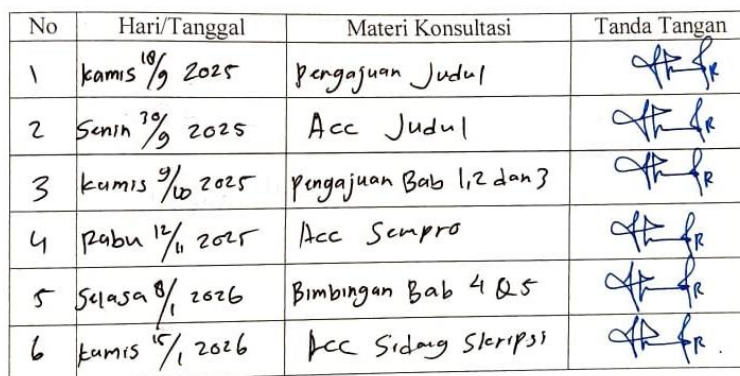 No Hari/Tanggal Materi Konsultasi Tanda Tangan
1 Kamis 18/9 2025 Pengajuan Judul
2 Senin 30/9 2025 Acc Judul
3 Kamis 9/10 2025 Pengajuan Bab 1,2 dan 3
4 Rabu 12/11 2025 Acc Sempro
5 Selasa 8/1 2026 Bimbingan Bab 4 & 5
6 Kamis 15/1 2026 Acc Sidang Skripsi